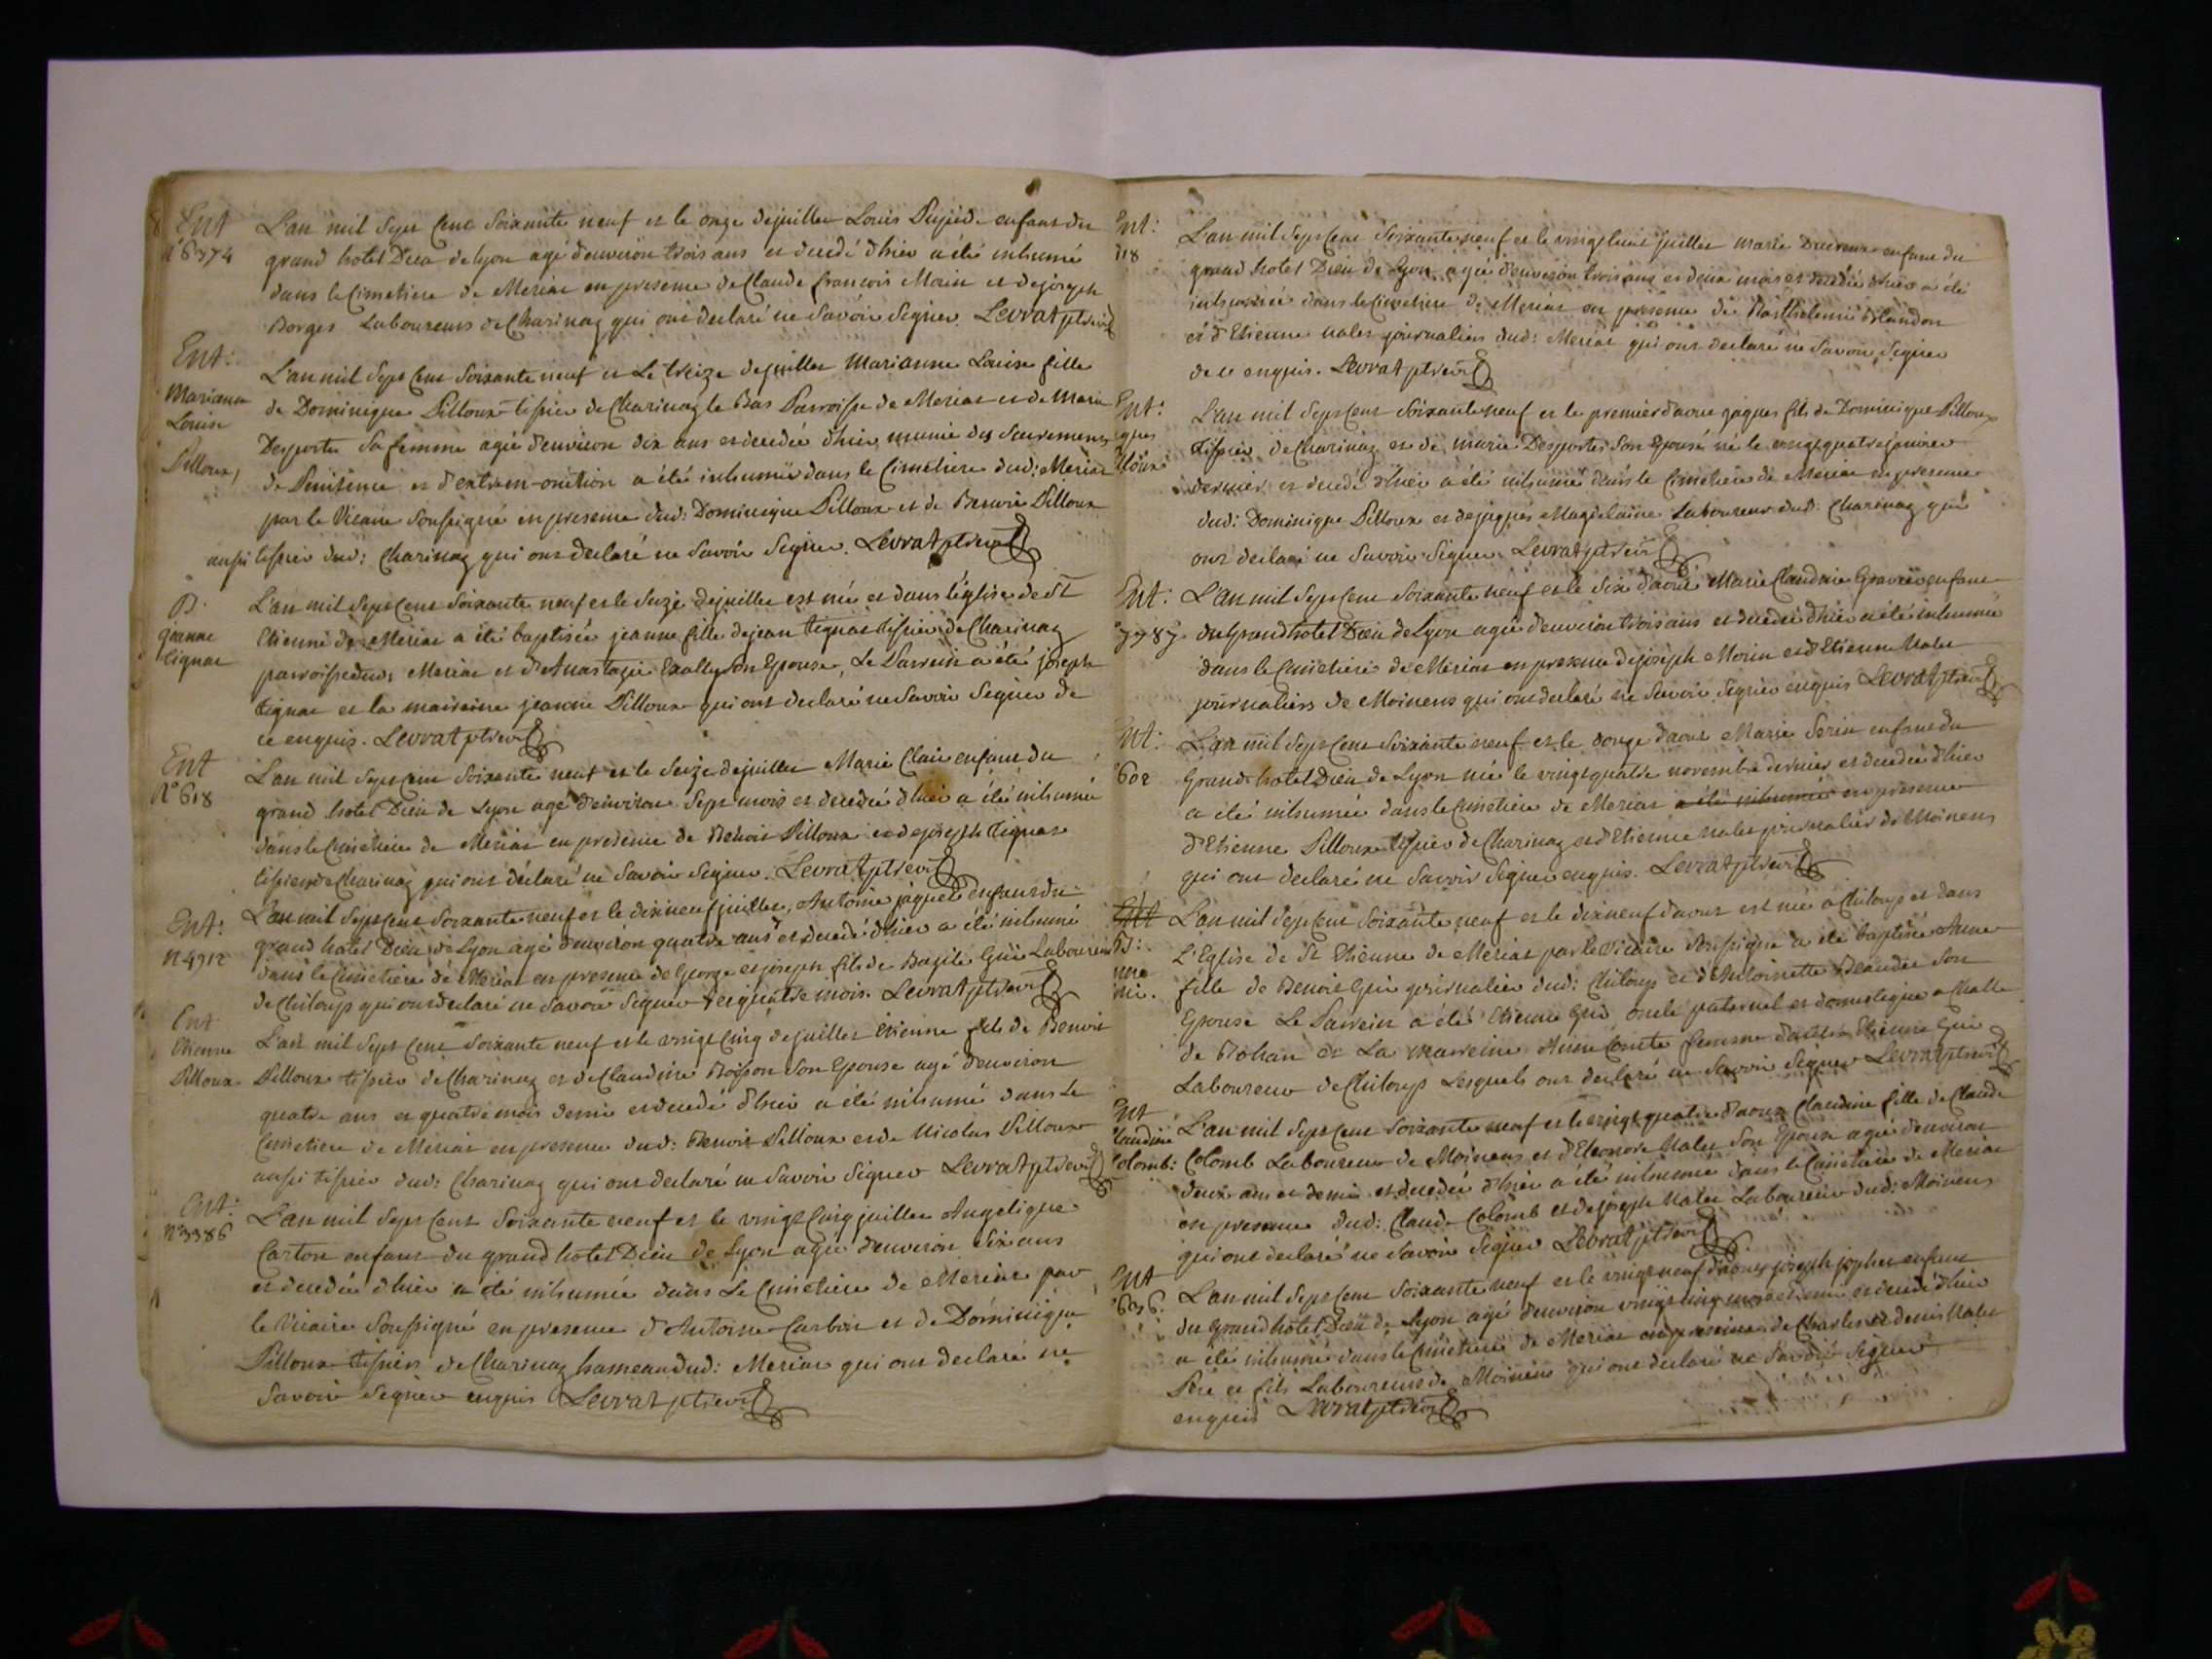 Ent
n°6374
L'an mil Sept Cent Soixante neuf et le onze de juillet Louis enfant du
grand hotel Dieu de lyon agé d'environ trois ans et decedé d'hier a été inhumé
dans le Cimetiere de Meriat en presence de Claude francois Morin et de joseph
Borges Laboureurs de Charinaz qui ont declaré ne Savoir Signer. Levrat ptre vic
Ent:
Marianne
Louise
Pilloux
L'an mil Sept Cent Soixante neuf et Le treize de juillet Marianne Louise fille
de Dominique Pilloux tissier de Charinaz le Bas Parroisse de Meriat et de Marie
Desportes Sa femme agée d'environ dix ans et decedée d'hier munie des Sacremens
de Penitence et d'extrem-onction a été inhumée dans le Cimetiere dud: Meriat
par le Vicaire Soussigné en presence dud: Dominique Pilloux et de Benoit Pilloux
aussi tissier dud: Charinaz qui ont declaré ne Savoir Signer. Levrat ptre vic
B.
jeanne
tignat
L'an mil Sept Cent Soixante neuf et le Seize de juillet est née et dans l'église de St
Etienne de Meriat a été baptisée jeanne fille de jean tignat tissier de Charinaz
parroisse dud: Meriat et d'Anastazie Exally Son Epouse, Le Parrein a été joseph
tignat et la marreine jeanne Pilloux qui ont declaré ne Savoir Signer de
ce enquis. Levrat ptre vic
Ent
N°618
L'an mil Sept Cent Soixante neuf et le Seize de juillet Marie Clair enfant du
grand hotel Dieu de Lyon agé d'environ Sept mois et decedée d'hier a été inhumée
dans le Cimetiere de Meriat en presence de Benoit Pilloux et de joseph tignat
tissiers de Charinaz qui ont declaré ne Savoir Signer. Levrat ptre vic
Ent:
n 4912
L'an mil Sept Cent Soixante neuf et le dixneuf juillet, Antoine jaquet enfant du
grand hotel Dieu de Lyon agé d'environ quatre ans et decedé d'hier a été inhumé
dans le Cimetiere de Meriat en presence de George et joseph fils de Bazile Guie Laboureurs
de Chiloup qui ont declaré ne Savoir Signer et quatre mois. Levrat ptre vic
Ent
Etienne
Pilloux
L'an mil Sept Cent Soixante neuf et le vingt Cinq de juillet Etienne fils de Benoit
Pilloux tissier de Charinaz et de Claudine Boisson Son Epouse agé d'environ
quatre ans et quatre mois demi et decedé d'hier a été inhumé dans Le
Cimetiere de Meriat en presence dud: Benoit Pilloux et de Nicolas Pilloux
aussi tissier dud: Charinaz qui ont declaré ne Savoir Signer Levrat ptre vic
Ent:
N°3386
L'an mil Sept Cent Soixante neuf et le vingt Cinq juillet Angelique
Carton enfant du grand hotel Dieu de Lyon agée d'environ Six ans
et decedée d'hier a été inhumée dans Le Cimetiere de Meriat par
le Vicaire Soussigné en presence d'Antoine Carbon et de Dominique
Pilloux tissiers de Charinaz hameau dud: Meriat qui ont declaré ne
Savoir Signer enquis Levrat ptre vic
Ent:
118
L'an mil Sept Cent Soixante neuf et le vingt huit juillet marie enfant du
grand hotel Dieu de Lyon agée d'environ trois ans et deux mois et decedée d'hier a été
inhumée dans le Cimetiere de Meriat en presence de Barthelemi Blandon
et d'Etienne Nalet journaliers dud: Meriat qui ont declaré ne Savoir Signer
de ce enquis. Levrat ptre vic
Ent:
ques
lloux
L'an mil Sept Cent Soixante neuf et le premier d'aout jaques fils de Dominique Pilloux
tissier de Charinaz et de marie Desportes Son Epouse né le vingt quatre janvier
dernier et decedé d'hier a été inhumé dans le Cimetiere de Meriat en presence
dud: Dominique Pilloux et de jaques Magdelaine Laboureur dud: Charinaz qui
ont declaré ne Savoir Signer Levrat ptre vic
Ent:
7787
L'an mil Sept Cent Soixante neuf et le Six d'aout Marie Claudine enfant
du Grand hôtel Dieu de Lyon agée d'environ trois ans et decedée d'hier a été inhumée
dans le Cimetiere de Meriat en presence de joseph Morin et d'Etienne Nalet
journaliers de Moinens qui ont declaré ne Savoir Signer enquis Levrat ptre vic
Ent:
602
L'an mil Sept Cent Soixante neuf et le douze d'aout Marie Serin enfant du
Grand hotel Dieu de Lyon née le vingt quatre novembre dernier et decedée d'hier
a été inhumée dans le Cimetiere de Meriat a été inhumée en presence
d'Etienne Pilloux tissier de Charinaz et d'Etienne Nalet journalier de Moinens
qui ont declaré ne Savoir Signer enquis. Levrat ptre vic
Ent
B:
nne
uie.
L'an mil Sept Cent Soixante neuf et le dixneuf d'aout est née a Chiloup et dans
L'Eglise de St Etienne de Meriat par le Vicaire Soussigné a été baptisée Anne
fille de Benoit Guie journalier dud: Chiloup et d'Antoinette Beaudet Son
Epouse Le Parrein a été Etienne Guie oncle paternel et domestique a
de Bohan et La marreine Anne Comte femme d'autre Etienne Guie
Laboureur de Chiloup Lesquels ont declaré ne Savoir Signer Levrat ptre vic
Ent
Claudine
Colomb:
L'an mil Sept Cent Soixante neuf et le vingt quatre d'aout Claudine fille de Claude
Colomb Laboureur de Moinens et d'Eleonore Nalet Son Epouse agée d'environ
deux ans et demi et decedée d'hier a été inhumée dans le Cimetiere de Meriat
en presence dud: Claude Colomb et de joseph Nalet Laboureur dud: Moinens
qui ont declaré ne Savoir Signer Levrat ptre vic
Ent
6056.
L'an mil Sept Cent Soixante neuf et le vingt neuf d'aout joseph enfant
du Grand hôtel Dieu de Lyon agé d'environ vingt cinq mois et demi et decedé d'hier
a été inhumé dans le Cimetiere de Meriat en presence de Charles et denis Nalet
Pere et fils Laboureurs de Moinens qui ont declaré ne Savoir Signer
enquis Levrat ptre vic